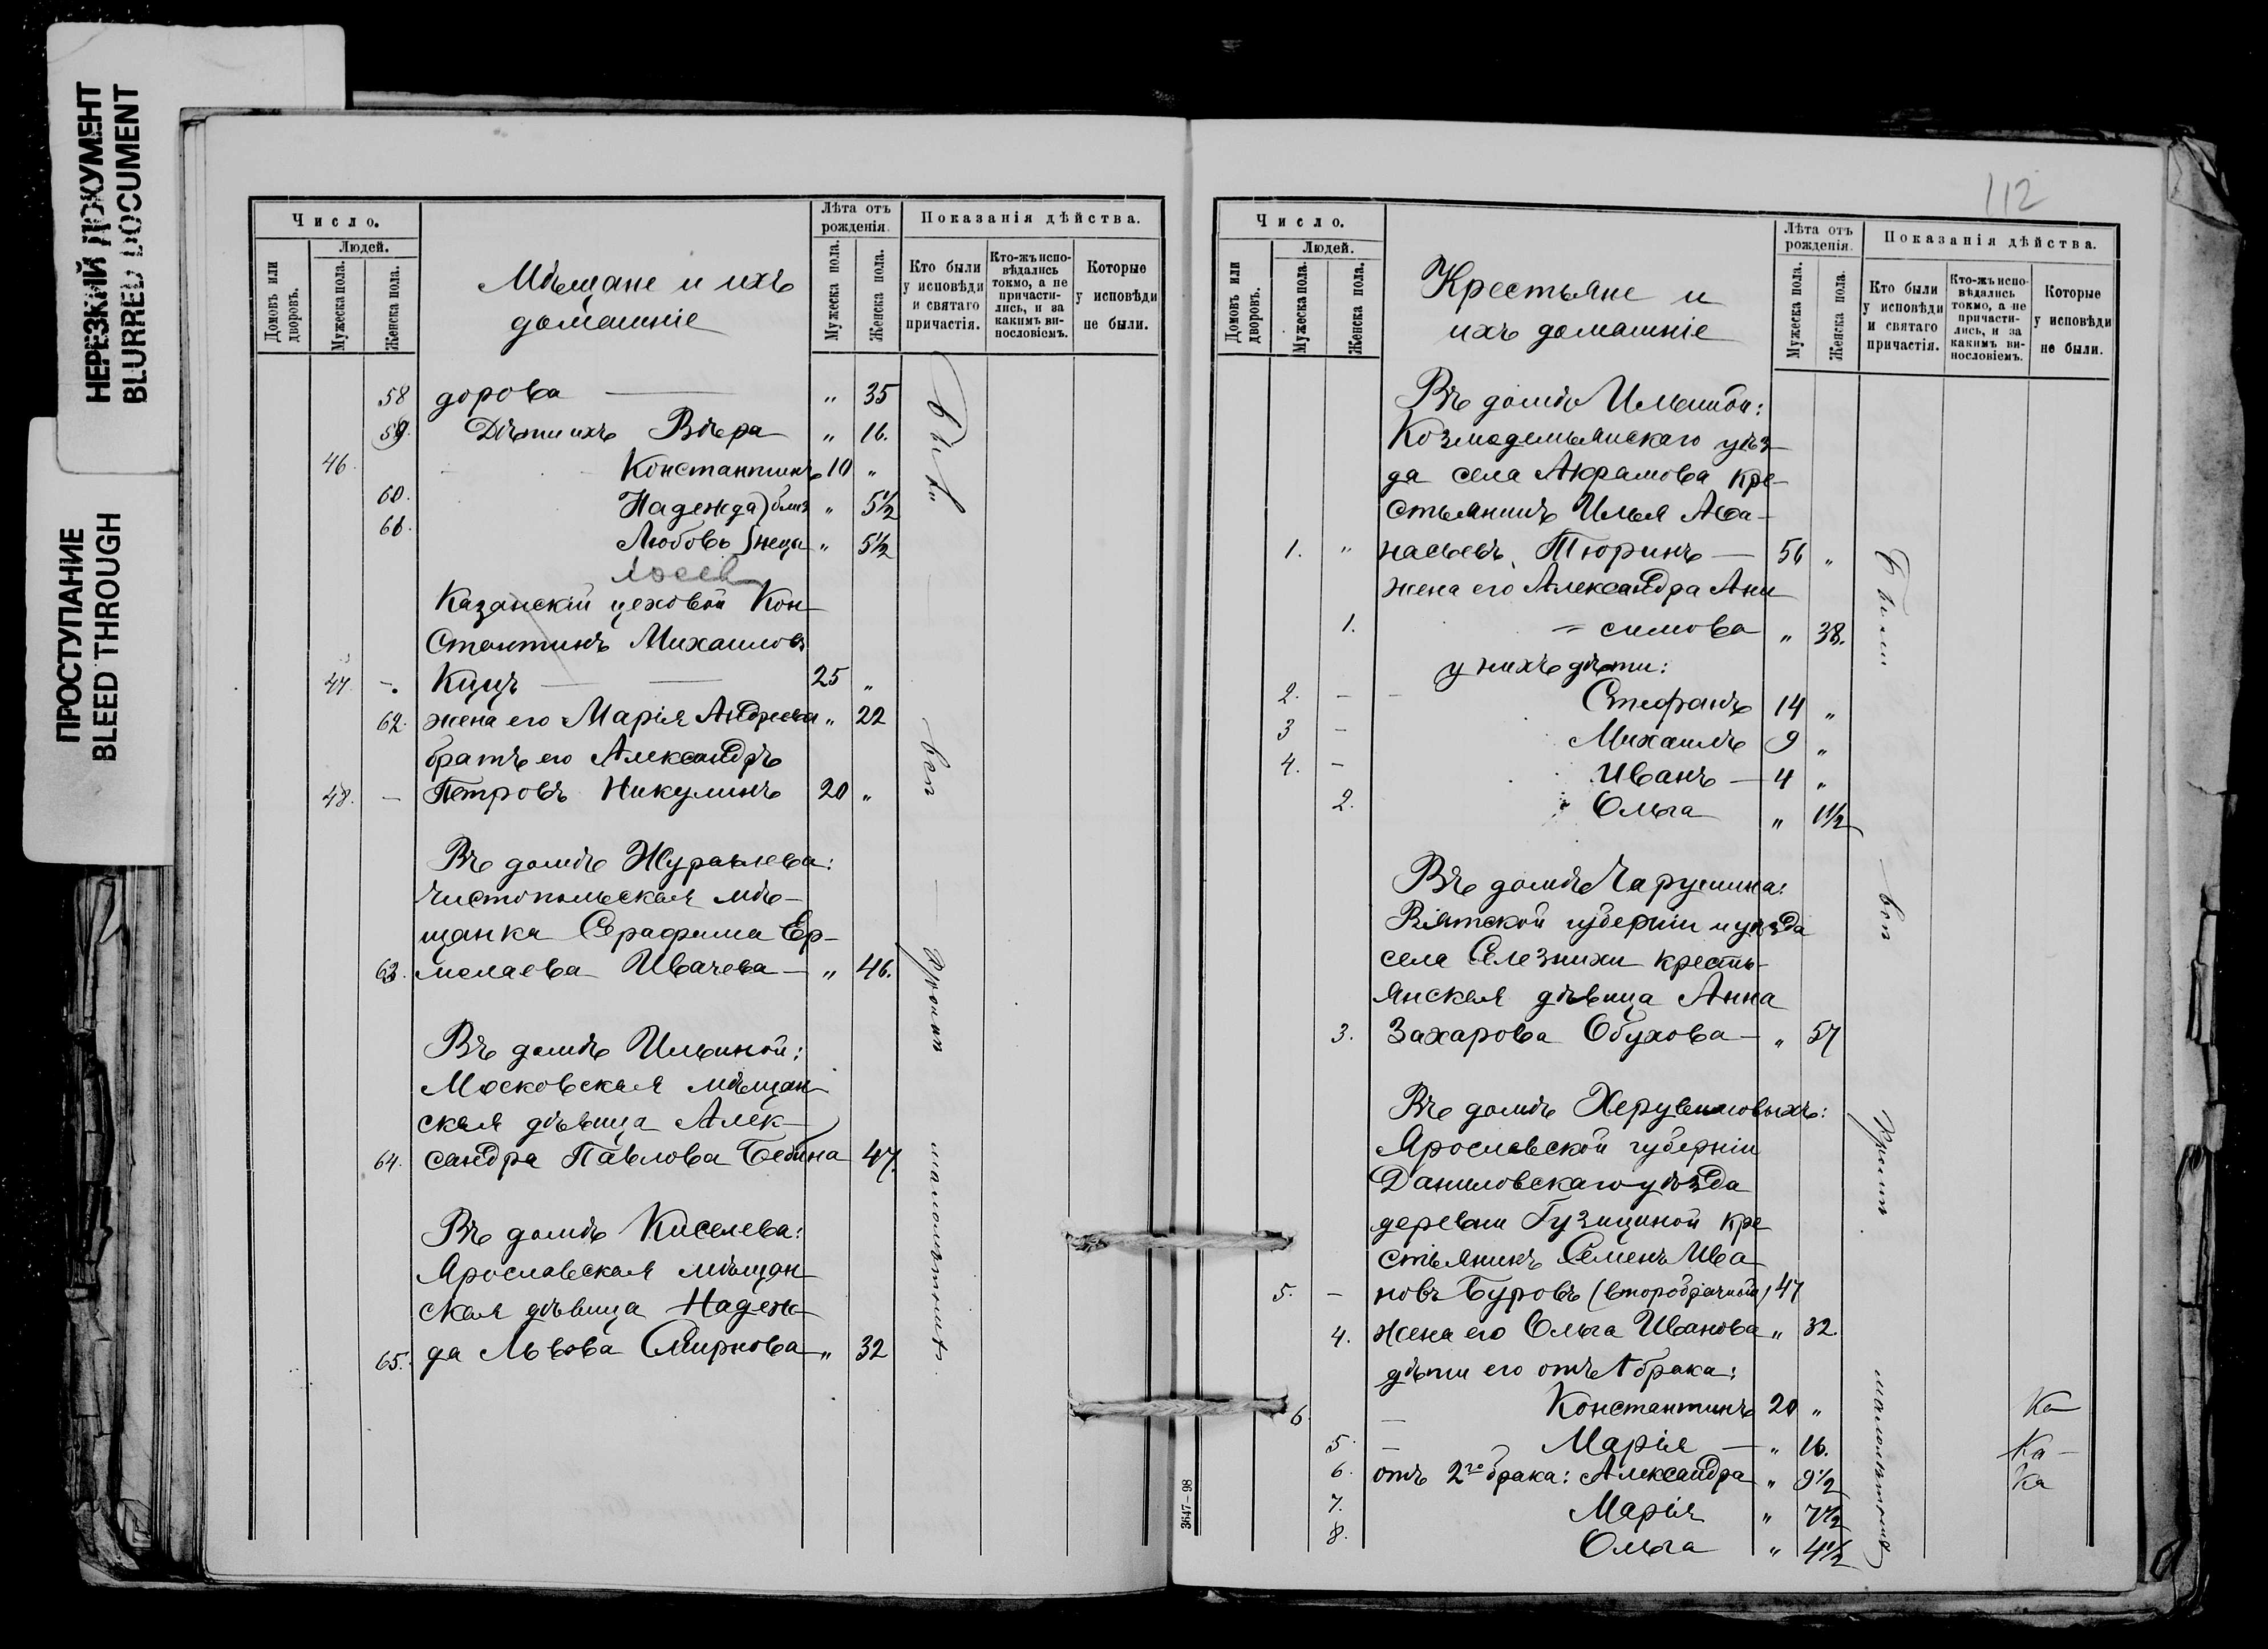 НЕРЕЗКИЙ ДОКУМЕНТ
BLURRED DOCUMENT
ПРОСТУПАНИЕ
BLEED THROUGH
Число.
Людей.
Домовъ или дворовъ.
Мужеска пола.
Женска пола.
Мѣщане и ихъ
домашніе
Лѣта отъ рожденія.
Мужеска пола.
Женска пола.
Показанія дѣйства.
Кто были у исповѣди и святаго причастія.
Кто-жъ исповѣдались токмо, а не причастились, и за какимъ винословіемъ.
Которые у исповѣди не были.
58 дорова — " 35
59. Дѣти ихъ Вѣра " 16.
46. Константинъ 10 "
60. Надежда) близ " 5½
61. Любовь }нецы " 5½
Казанскій цеховой Кон-
стантинъ Михаиловъ
47. -. Куцъ — 25 "
62. жена его Марія Андреева " 22
братъ его Александръ
48. — Петровъ Никулинъ 20 "
Въ домѣ Журавлева:
Чистопольская мѣ-
щанка Серафима Ер-
63. молаева Ивачева — " 46.
Въ домѣ Ильиной:
Московская мѣщан-
ская дѣвица Алек-
64. сандра Павлова Бебина 47.
Въ домѣ Киселева:
Ярославская мѣщан-
ская дѣвица Надеж-
65. да Львова Смирнова " 32
Были
всп
кромѣ
малолѣтнихъ.
112
Число.
Людей.
Домовъ или дворовъ.
Мужеска пола.
Женска пола.
Крестьяне и
ихъ домашніе
Лѣта отъ рожденія.
Мужеска пола.
Женска пола.
Показанія дѣйства.
Кто были у исповѣди и святаго причастія.
Кто-жъ исповѣдались токмо, а не причастились, и за какимъ винословіемъ.
Которые у исповѣди не были.
Въ домѣ
Козмодемьянскаго уѣз-
да села Акрамова кре-
стьянинъ Илья Аѳа-
1. " насьевъ Тюринъ — 56 "
жена его Александра Ани-
1. = симова " 38.
у нихъ дѣти:
2. - - Стефанъ 14 "
3 - Михаилъ 9 "
4. - Иванъ — 4 "
2. Ольга " 1½
Въ домѣ Чарушина:
Вятской губерніи и уѣзда
села Селезнихи кресть-
янская дѣвица Анна
3. Захарова Обухова — " 57
Въ домѣ Херувимовыхъ:
Ярославской губерніи
Даниловскаго уѣзда
деревни Гузициной кре-
стьянинъ Семенъ Ива-
5. - новъ Буровъ (второбрачный) 47
4. жена его Ольга Иванова " 32.
дѣти его отъ 1 брака:
6. — Константинъ 20 " Ка
5. - Марія — " 16. Ка -
6. отъ 2го брака: Александра " 9½ Ка
7. Марія " 7½
8. Ольга " 4½
Были
всп
кромѣ
малолѣтнихъ
3647—98